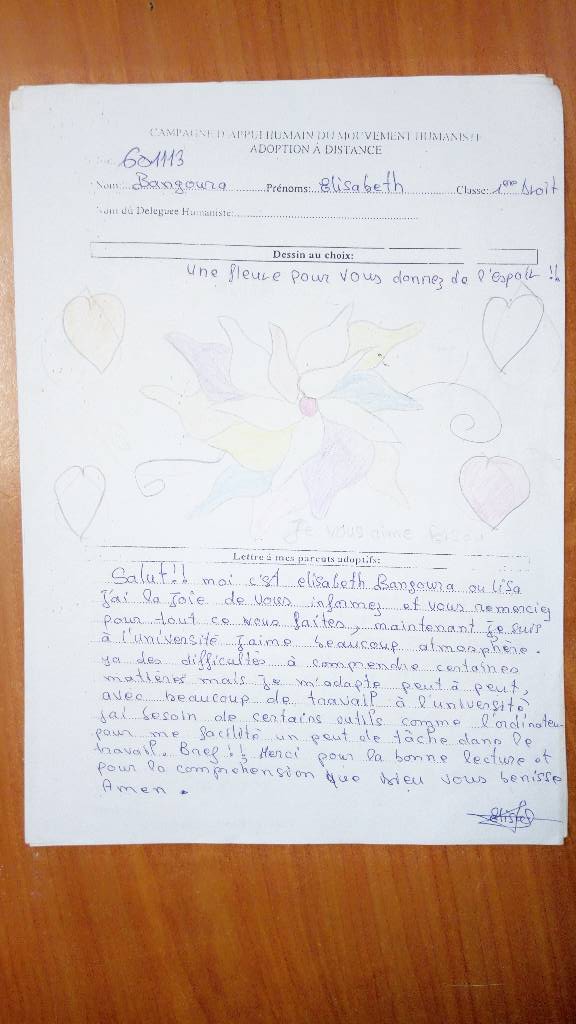 CAMPAGNE D'APPUI HUMAIN DU MOUVEMENT HUMANISTE
ADOPTION À DISTANCE
601113
Nom: Bangoura Prénoms: Elisabeth Classe: 1ere Droit
Nom du Deleguee Humaniste:
Dessin au choix:
Une fleure pour vous donnez de l'espoir !!
Je vous aime Bisou
Lettre à mes parents adoptifs:
Salut!! moi c'st elisabeth Bangoura ou lisa
j'ai la joie de vous informez et vous remerciez
pour tout ce vous faites, maintenant je suis
à l'université j'aime beaucoup atmosphère.
ya des difficultés à comprendre certaines
matières mais je m'adapte peut à peut,
avec beaucoup de travail à l'université
j'ai besoin de certains outils comme l'ordinateur
pour me facilité un peut de tâche dans le
travail. Bref !!, Merci pour la bonne lecture et
pour la compréhension que Dieu vous benisse
Amen.